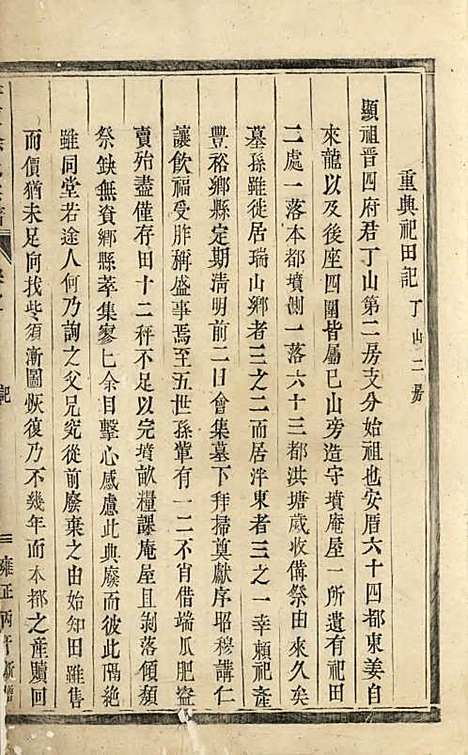 重典祀田記 丁山二房
顯祖晋四府君丁山第二房支分始祖也安厝六十四都東姜自
來龍以及後座四圍皆屬巳山旁造守墳庵屋一所遺有祀田
二處一落本都墳側一落六十三都洪塘歲收俻祭由來久矣
墓孫雖徙居瑞山鄉者三之二而居泮東者三之一幸賴祀產
豐裕鄉縣定期淸明前二日會集墓下拜掃奠獻序昭穆講仁
讓飲福受胙稱盛事焉至五世孫輩有一二不肖借端瓜肥盗
賣殆盡僅存田十二秤不足以完墳畝糧課庵屋且剥落傾頽
祭缺無資鄉縣萃集寥匕余目擊心感慮此典廢而彼此隔絶
雖同堂若途人何乃詢之父兄究從前廢棄之由始知田雖售
而價猶未足向找些須漸圖恢復乃不幾年而本都之產贖回
記
二 雍正丙午新譜